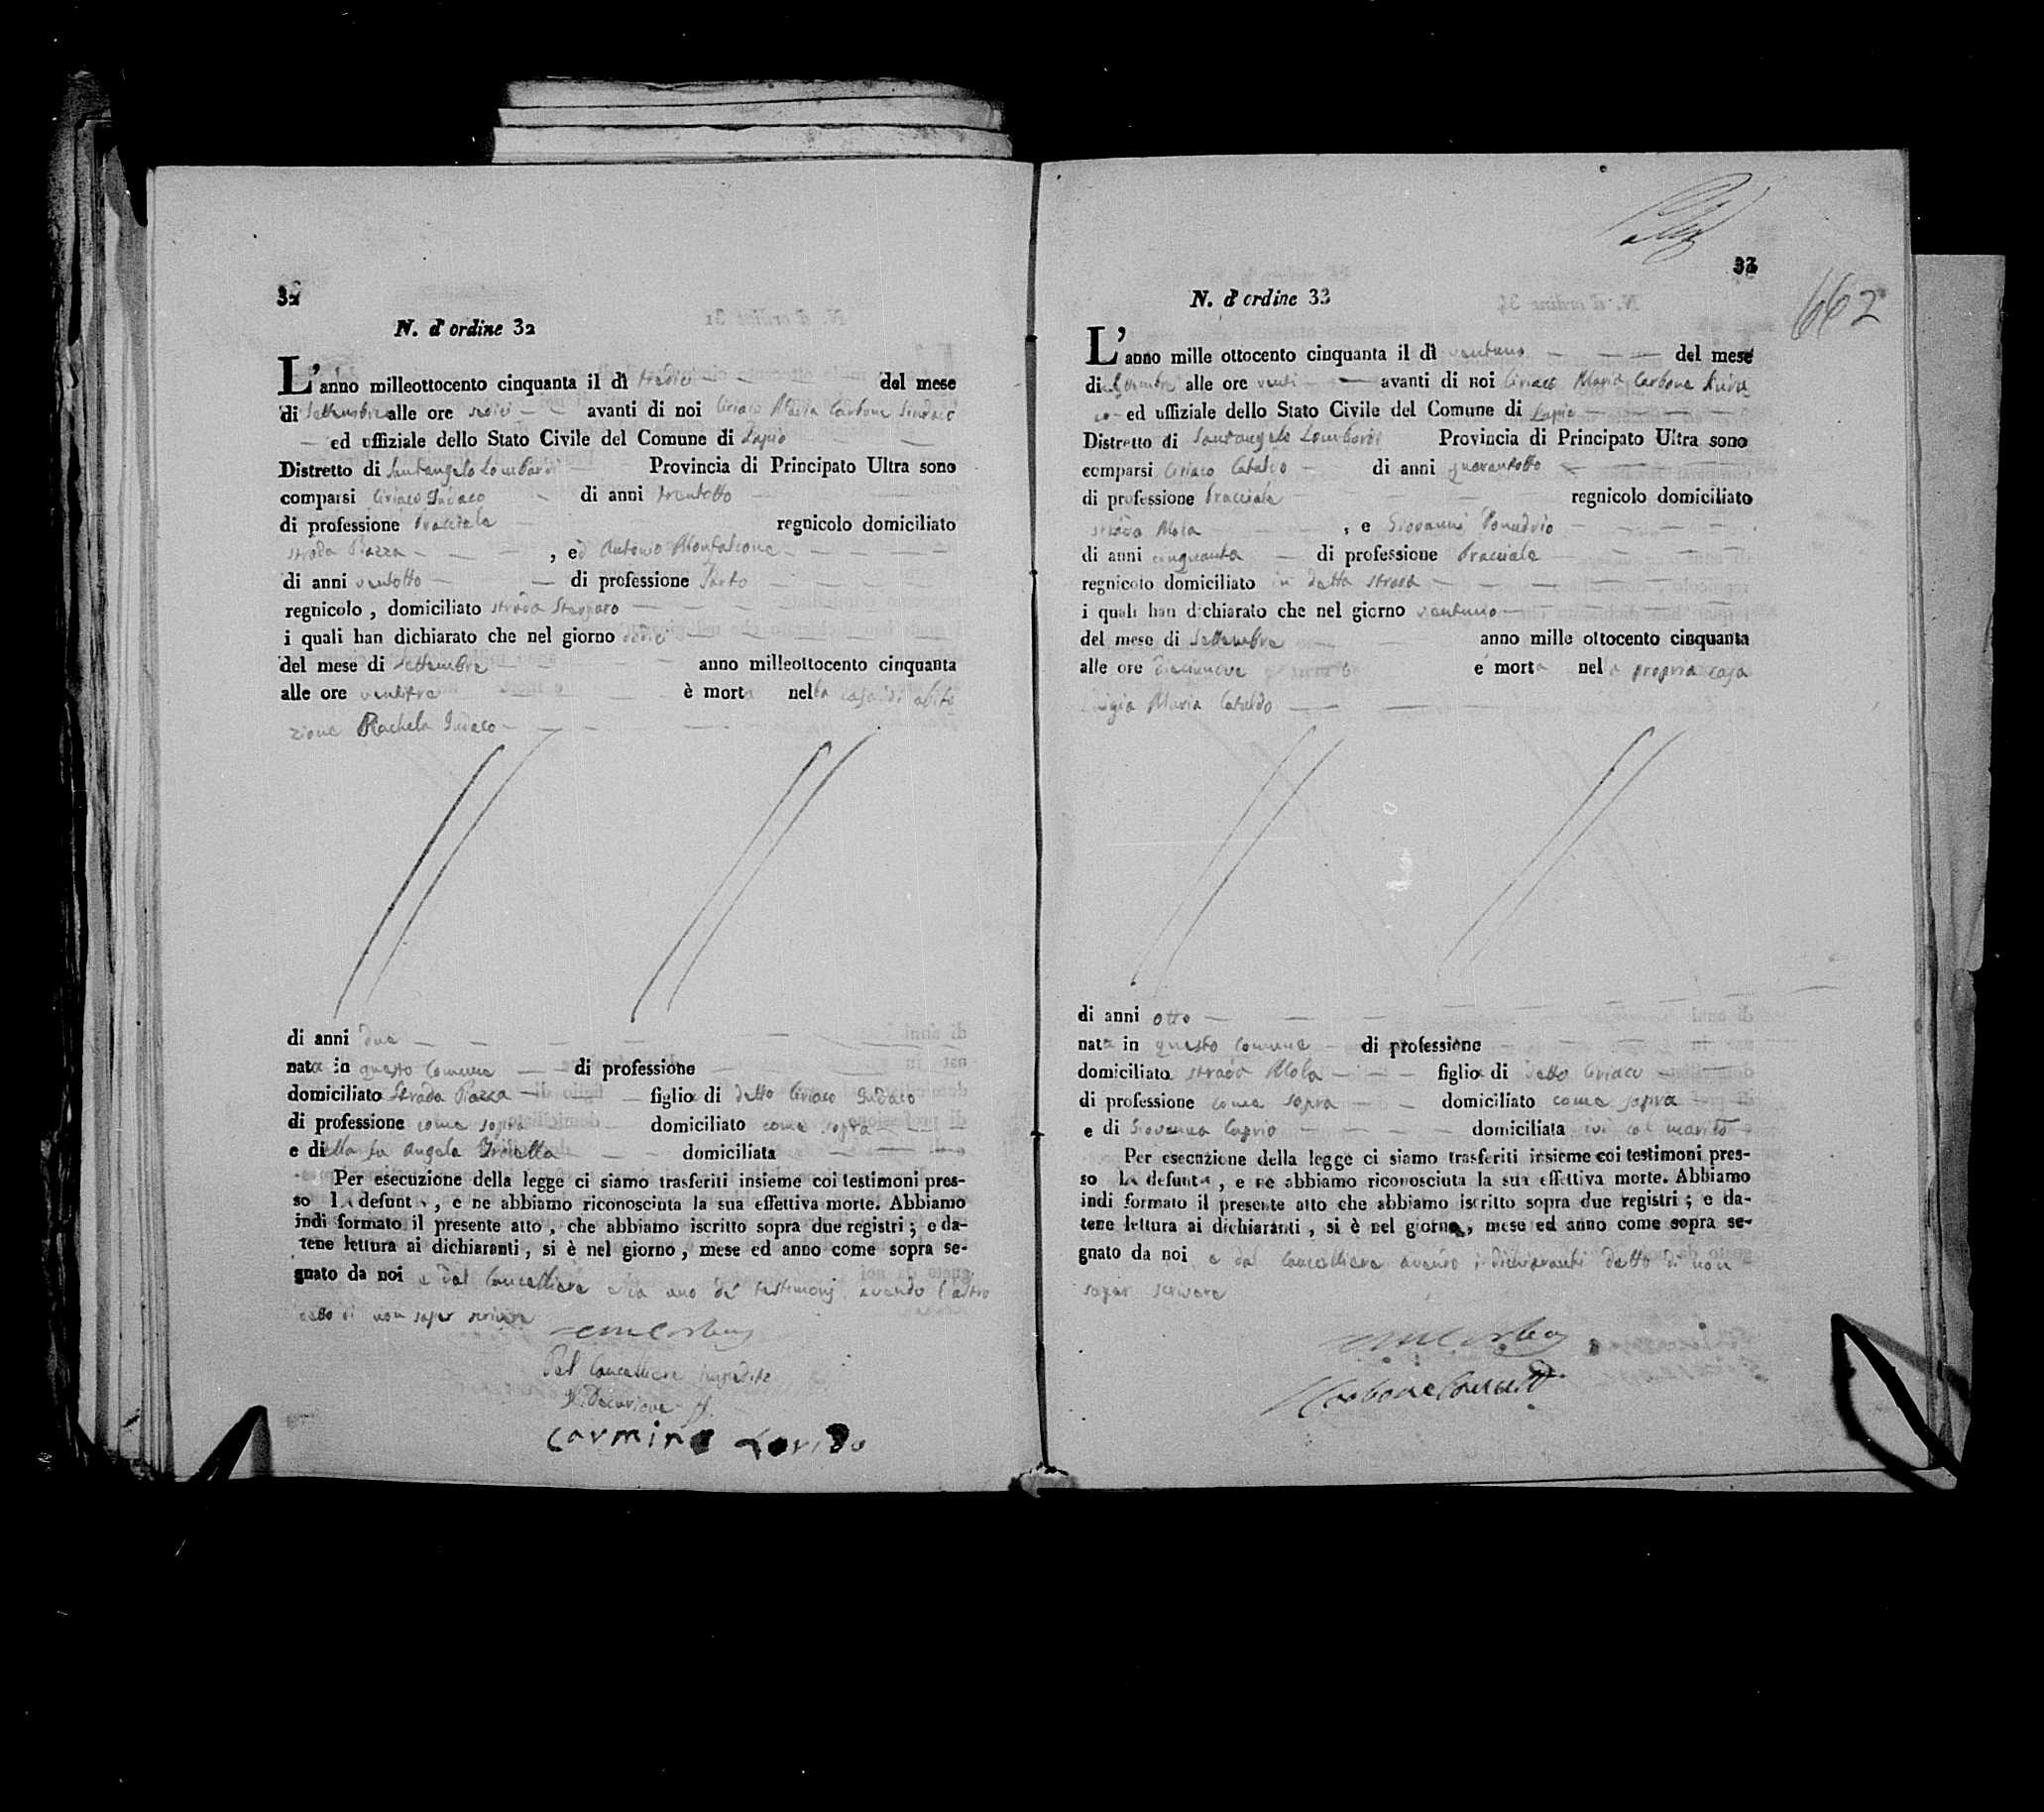 32
N. d'ordine 32
L'anno milleottocento cinquanta il dì tredici del mese
di Settembre alle ore sedici avanti di noi Ciriaco Maria Carbone Sindaco
ed uffiziale dello Stato Civile del Comune di Lapio
Distretto di Santangelo Lombardi Provincia di Principato Ultra sono
comparsi Ciriaco di anni trentotto
di professione Bracciale regnicolo domiciliato
strada Piazza , ed Antonio Monfalcone
di anni ventotto di professione Sarto
regnicolo , domiciliato strada
i quali han dichiarato che nel giorno
del mese di Settembre anno milleottocento cinquanta
alle ore ventitre è morta nella casa di abita
zione Rachela
di anni due
nata in questo Comune di professione
domiciliato Strada Piazza figlia di detto Ciriaco
di professione come sopra domiciliato come sopra
e di Angela domiciliata
Per esecuzione della legge ci siamo trasferiti insieme coi testimoni pres-
so la defunta , e ne abbiamo riconosciuta la sua effettiva morte. Abbiamo
indi formato il presente atto , che abbiamo iscritto sopra due registri ; e da-
tene lettura ai dichiaranti , si è nel giorno , mese ed anno come sopra se-
gnato da noi e dal Cancelliere e da uno de' testimonj avendo l'altro
detto di non saper scrivere
Pel Cancelliere impedito
Il Decurione
Carmine
33
662
N. d'ordine 33
L'anno mille ottocento cinquanta il dì ventuno del mese
di Settembre alle ore venti avanti di noi Ciriaco Maria Carbone Sinda
co ed uffiziale dello Stato Civile del Comune di Lapio
Distretto di Santangelo Lombardi Provincia di Principato Ultra sono
comparsi Ciriaco Cataldo di anni quarantotto
di professione Bracciale regnicolo domiciliato
strada Mola , e Giovanni
di anni cinquanta di professione Bracciale
regnicolo domiciliato in detta strada
i quali han dichiarato che nel giorno ventuno
del mese di Settembre anno mille ottocento cinquanta
alle ore diecinove è morta nella propria casa
Luigia Maria Cataldo
di anni otto
nata in questo Comune di professione
domiciliata strada Mola figlia di detto Ciriaco
di professione come sopra domiciliato come sopra
e di Giovanna Caprio domiciliata ivi col marito
Per esecuzione della legge ci siamo trasferiti insieme coi testimoni pres-
so la defunta , e ne abbiamo riconosciuta la sua effettiva morte. Abbiamo
indi formato il presente atto che abbiamo iscritto sopra due registri ; e da-
tene lettura ai dichiaranti , si è nel giorno , mese ed anno come sopra se-
gnato da noi e dal Cancelliere avendo i dichiaranti detto di non
saper scrivere